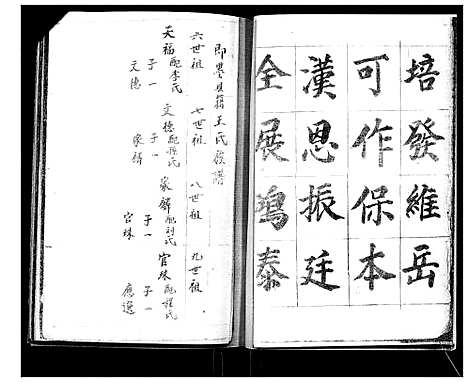 培發維岳
可作保本
漢思振廷
全展鴻泰
即墨县籍王氏族譜
六世祖 七世祖 八世祖 九世祖
天福配李氏 文德配程氏 家麟配刘氏 官林配程氏
子一 子一 子一 子一
元德 家麟 官林 應選